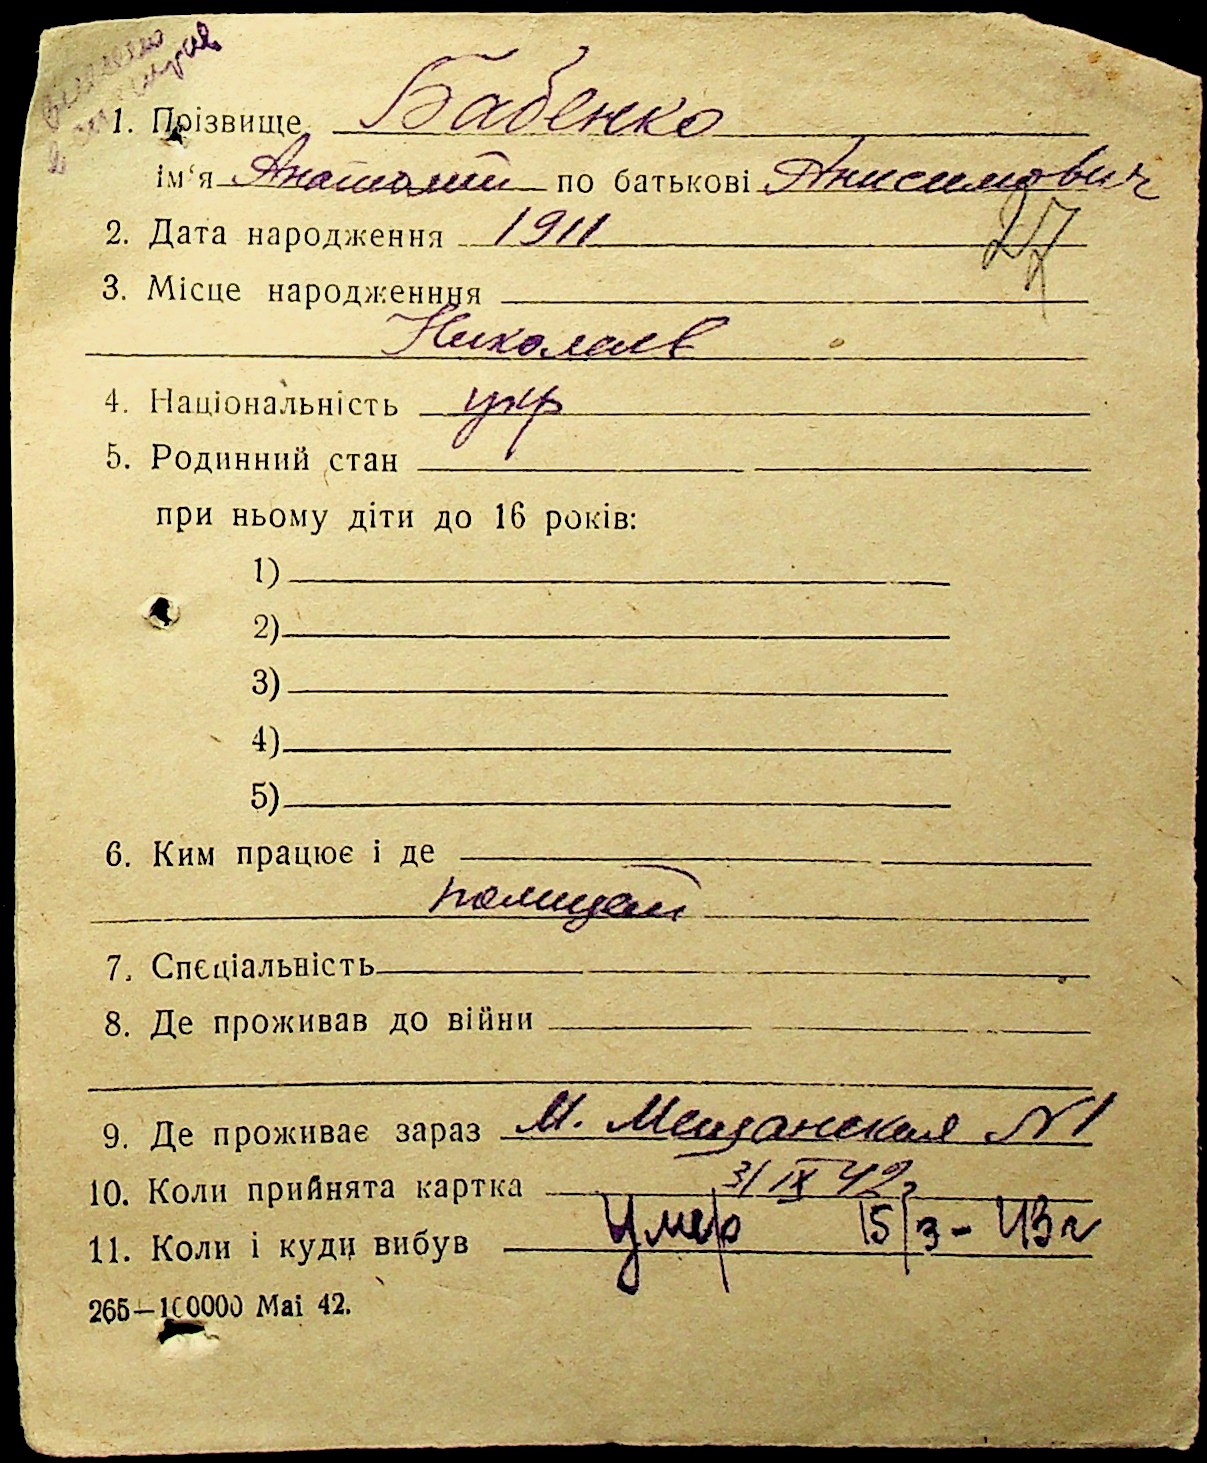 1. Прізвище Бабенко
ім'я Анатолий по батькові Анисимович
2. Дата народження 1911
27
3. Місце народженння
Николаев
4. Національність укр
5. Родинний стан
при ньому діти до 16 років:
1)
2)
3)
4)
5)
6. Ким працює і де
полицай
7. Спеціальність
8. Де проживав до війни
9. Де проживає зараз М. Мещанская №1
10. Коли прийнята картка 3/IX 42г
11. Коли і куди вибув Умер 15/3-43г
265—100000 Mai 42.